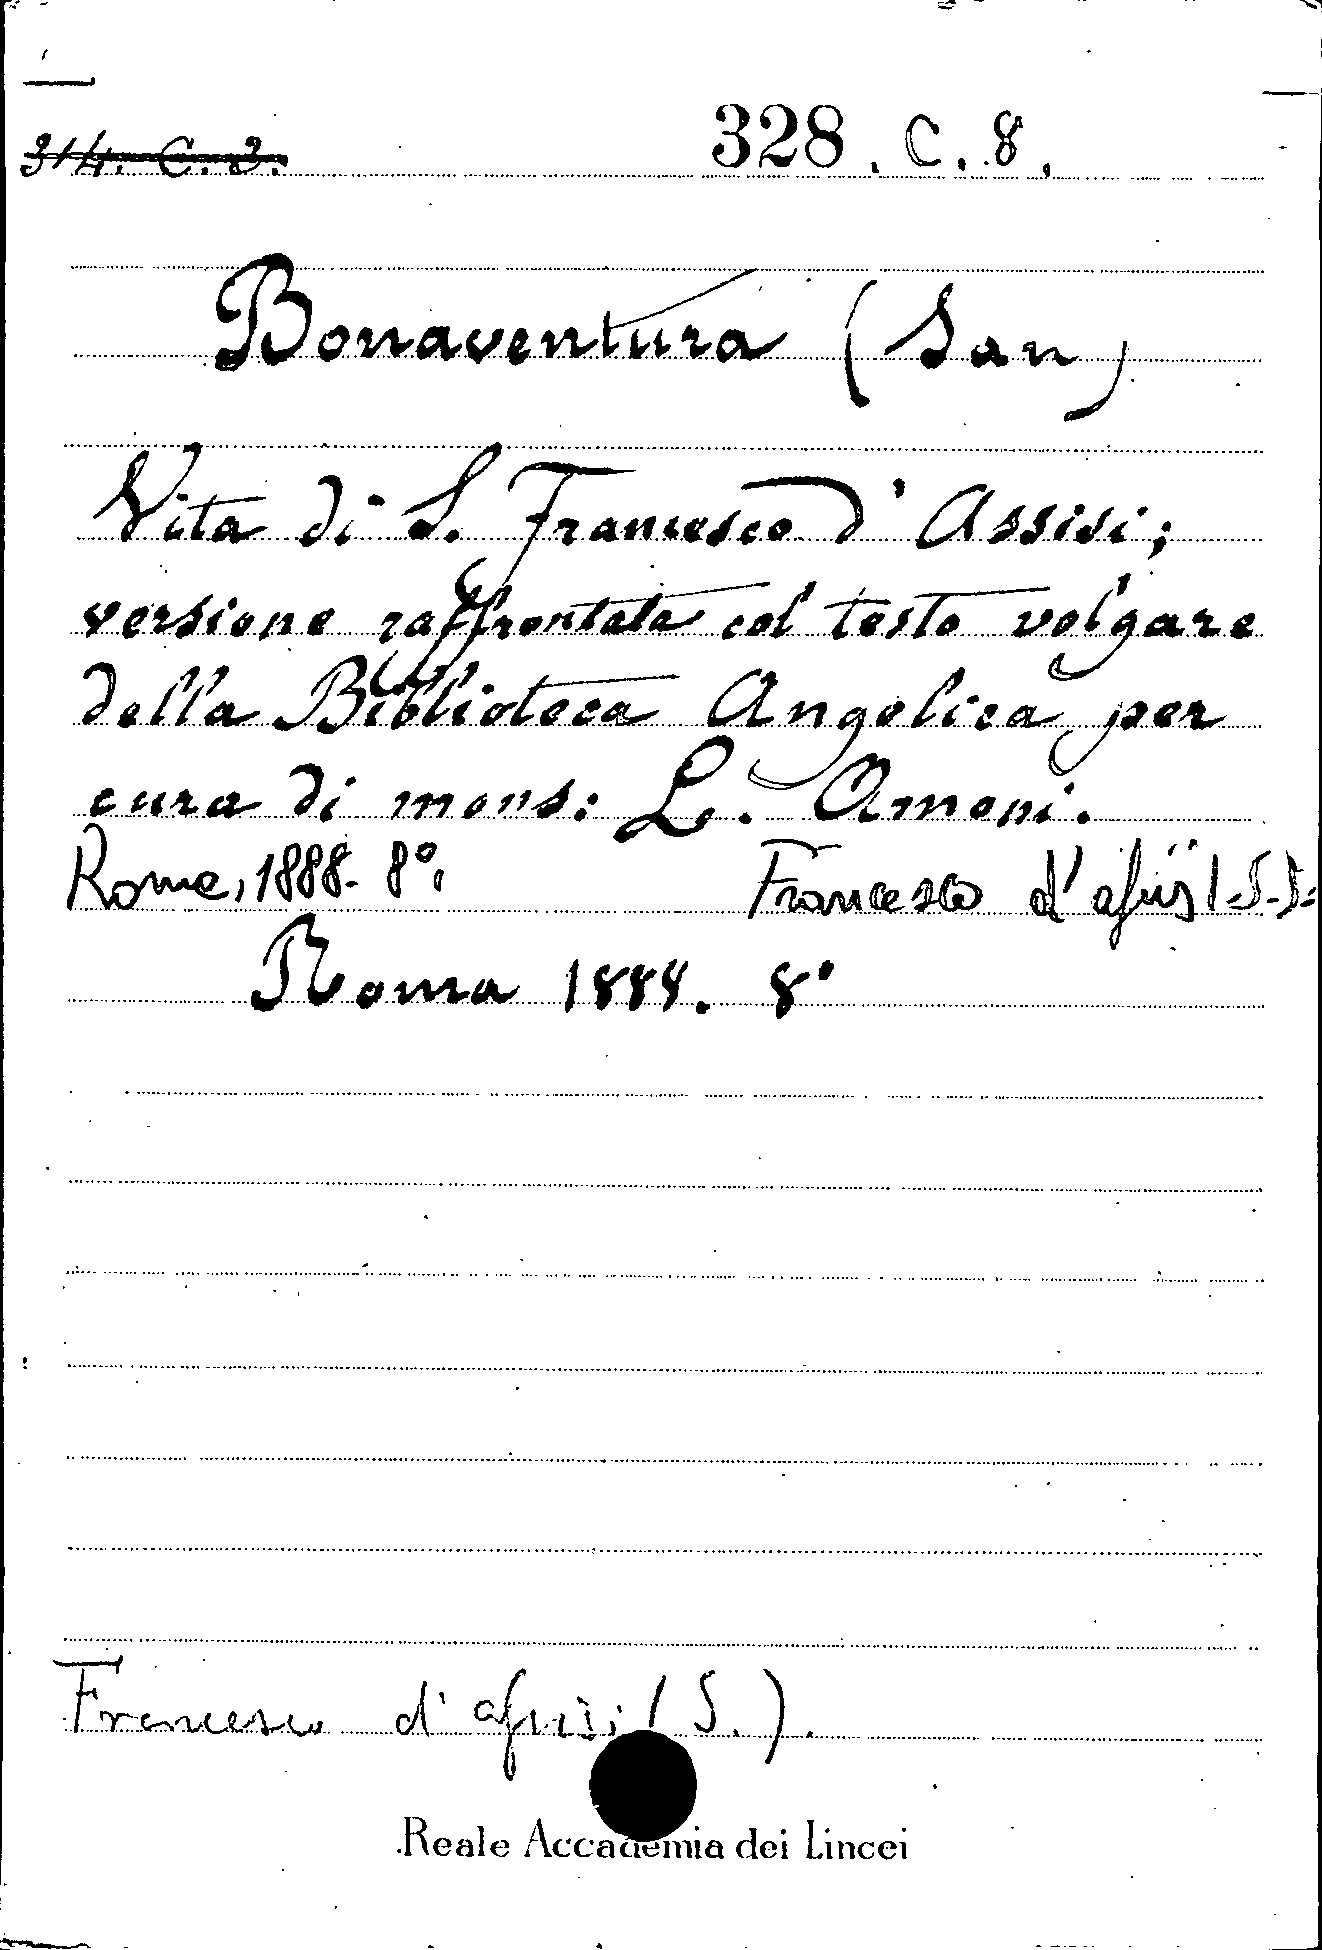 314. C. 3. 328. C. 8.
Bonaventura (San)
Vita di S. Francesco d'Assisi;
versione raffrontata col testo volgare
della Biblioteca Angelica per
cura di mons: L. Amoni.
Roma, 1888. 8°. Francesco d'Assisi
Roma 1888. 8°
Francesco d'Assisi (S.).
Reale Accademia dei Lincei